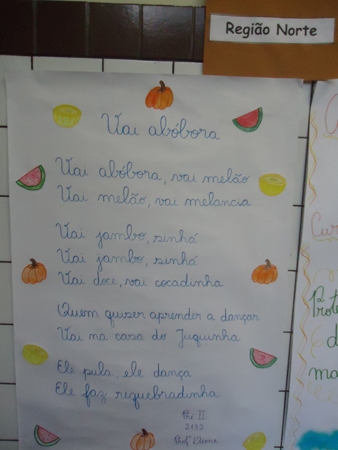 Região Norte
Vai abóbora
Vai abóbora, vai melão
Vai melão, vai melancia
Vai jambo, sinhá
Vai jambo, sinhá
Vai doce, vai cocadinha
Quem quizer aprender a dançar
Vai na casa do Juquinha
Ele pula, ele dança
Ele faz requebradinha
Pré II
2132